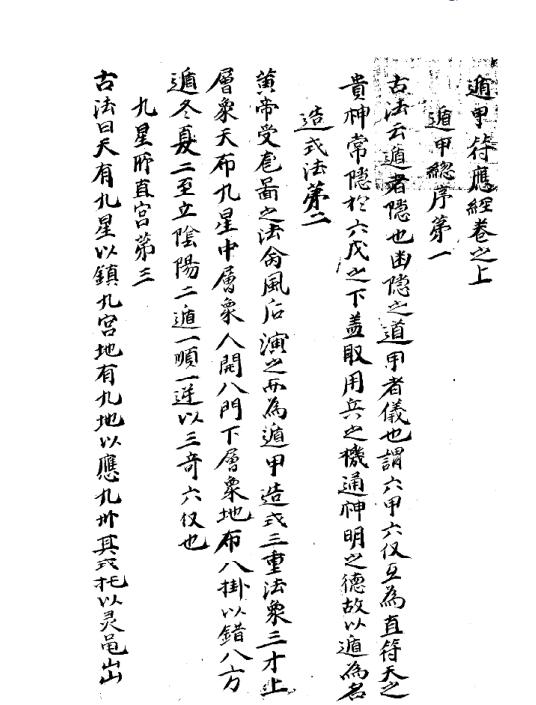 遁甲符應經卷之上
遁甲總序第一
古法云遁者隱也幽隱之道甲者儀也謂六甲六仪互為直符天之
貴神常隱於六戊之下盖取用兵之機通神明之德故以遁為名
造式法第二
黄帝受啚之法命風后演之而為遁甲造式三重法象三才上
層象天布九星中層象人開八門下層象地布八掛以錯八方
遁冬夏二至立陰陽二遁一順一逆以三奇六仪也
九星所直宫第三
古法曰天有九星以鎮九宫地有九地以應九州其式托以灵黾出